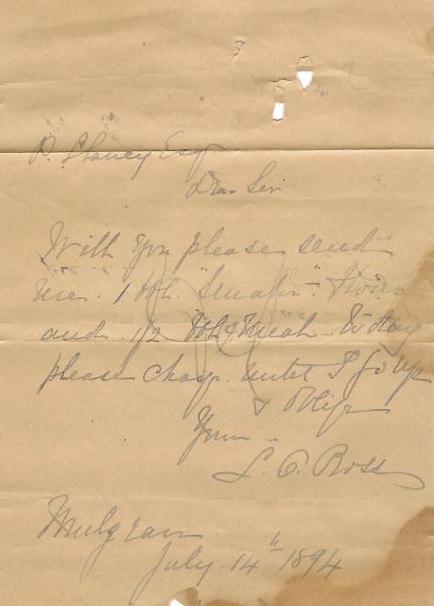 Esq
Dear Sir
Will you please send
me. 1 bbl. "Senator" Flour
and 1/2 bbl Meal to day
please charge until I go up
& Oblige
Yours
L. C. Ross
Mulgrave
July 14th 1894